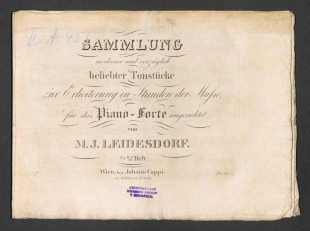 SAMMLUNG
moderner und vorzüglich
beliebter Tonstücke
zur Erheiterung in Stunden der Muße,
für das Piano-Forte eingerichtet
von
M. J. LEIDESDORF.
Heft.
Wien, bey Johann Cappi,